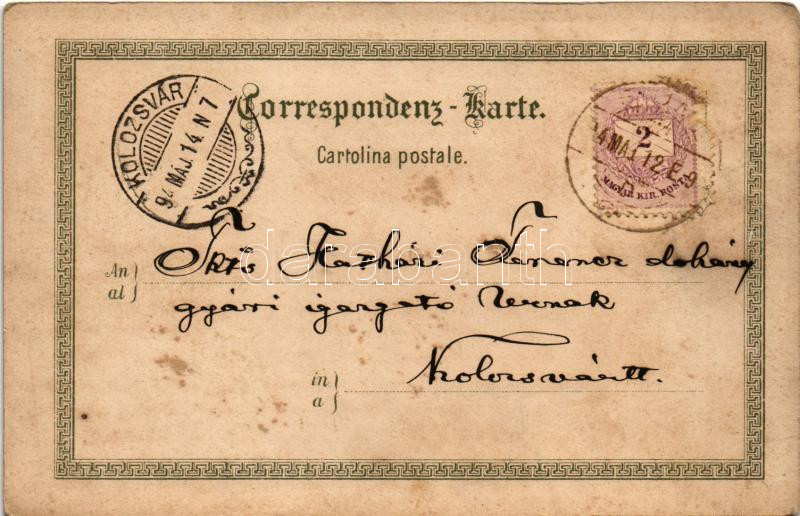 KOLOZSVÁR
94 MÁJ. 14. N 7
Correspondenz-Karte.
Cartolina postale.
2
94 MÁJ. 12. E. 8
MAGYAR KIR. POSTA
darabanth
An
al
Ferencz dohány
gyári igazgató Urnak
in
a
Kolozsvártt.